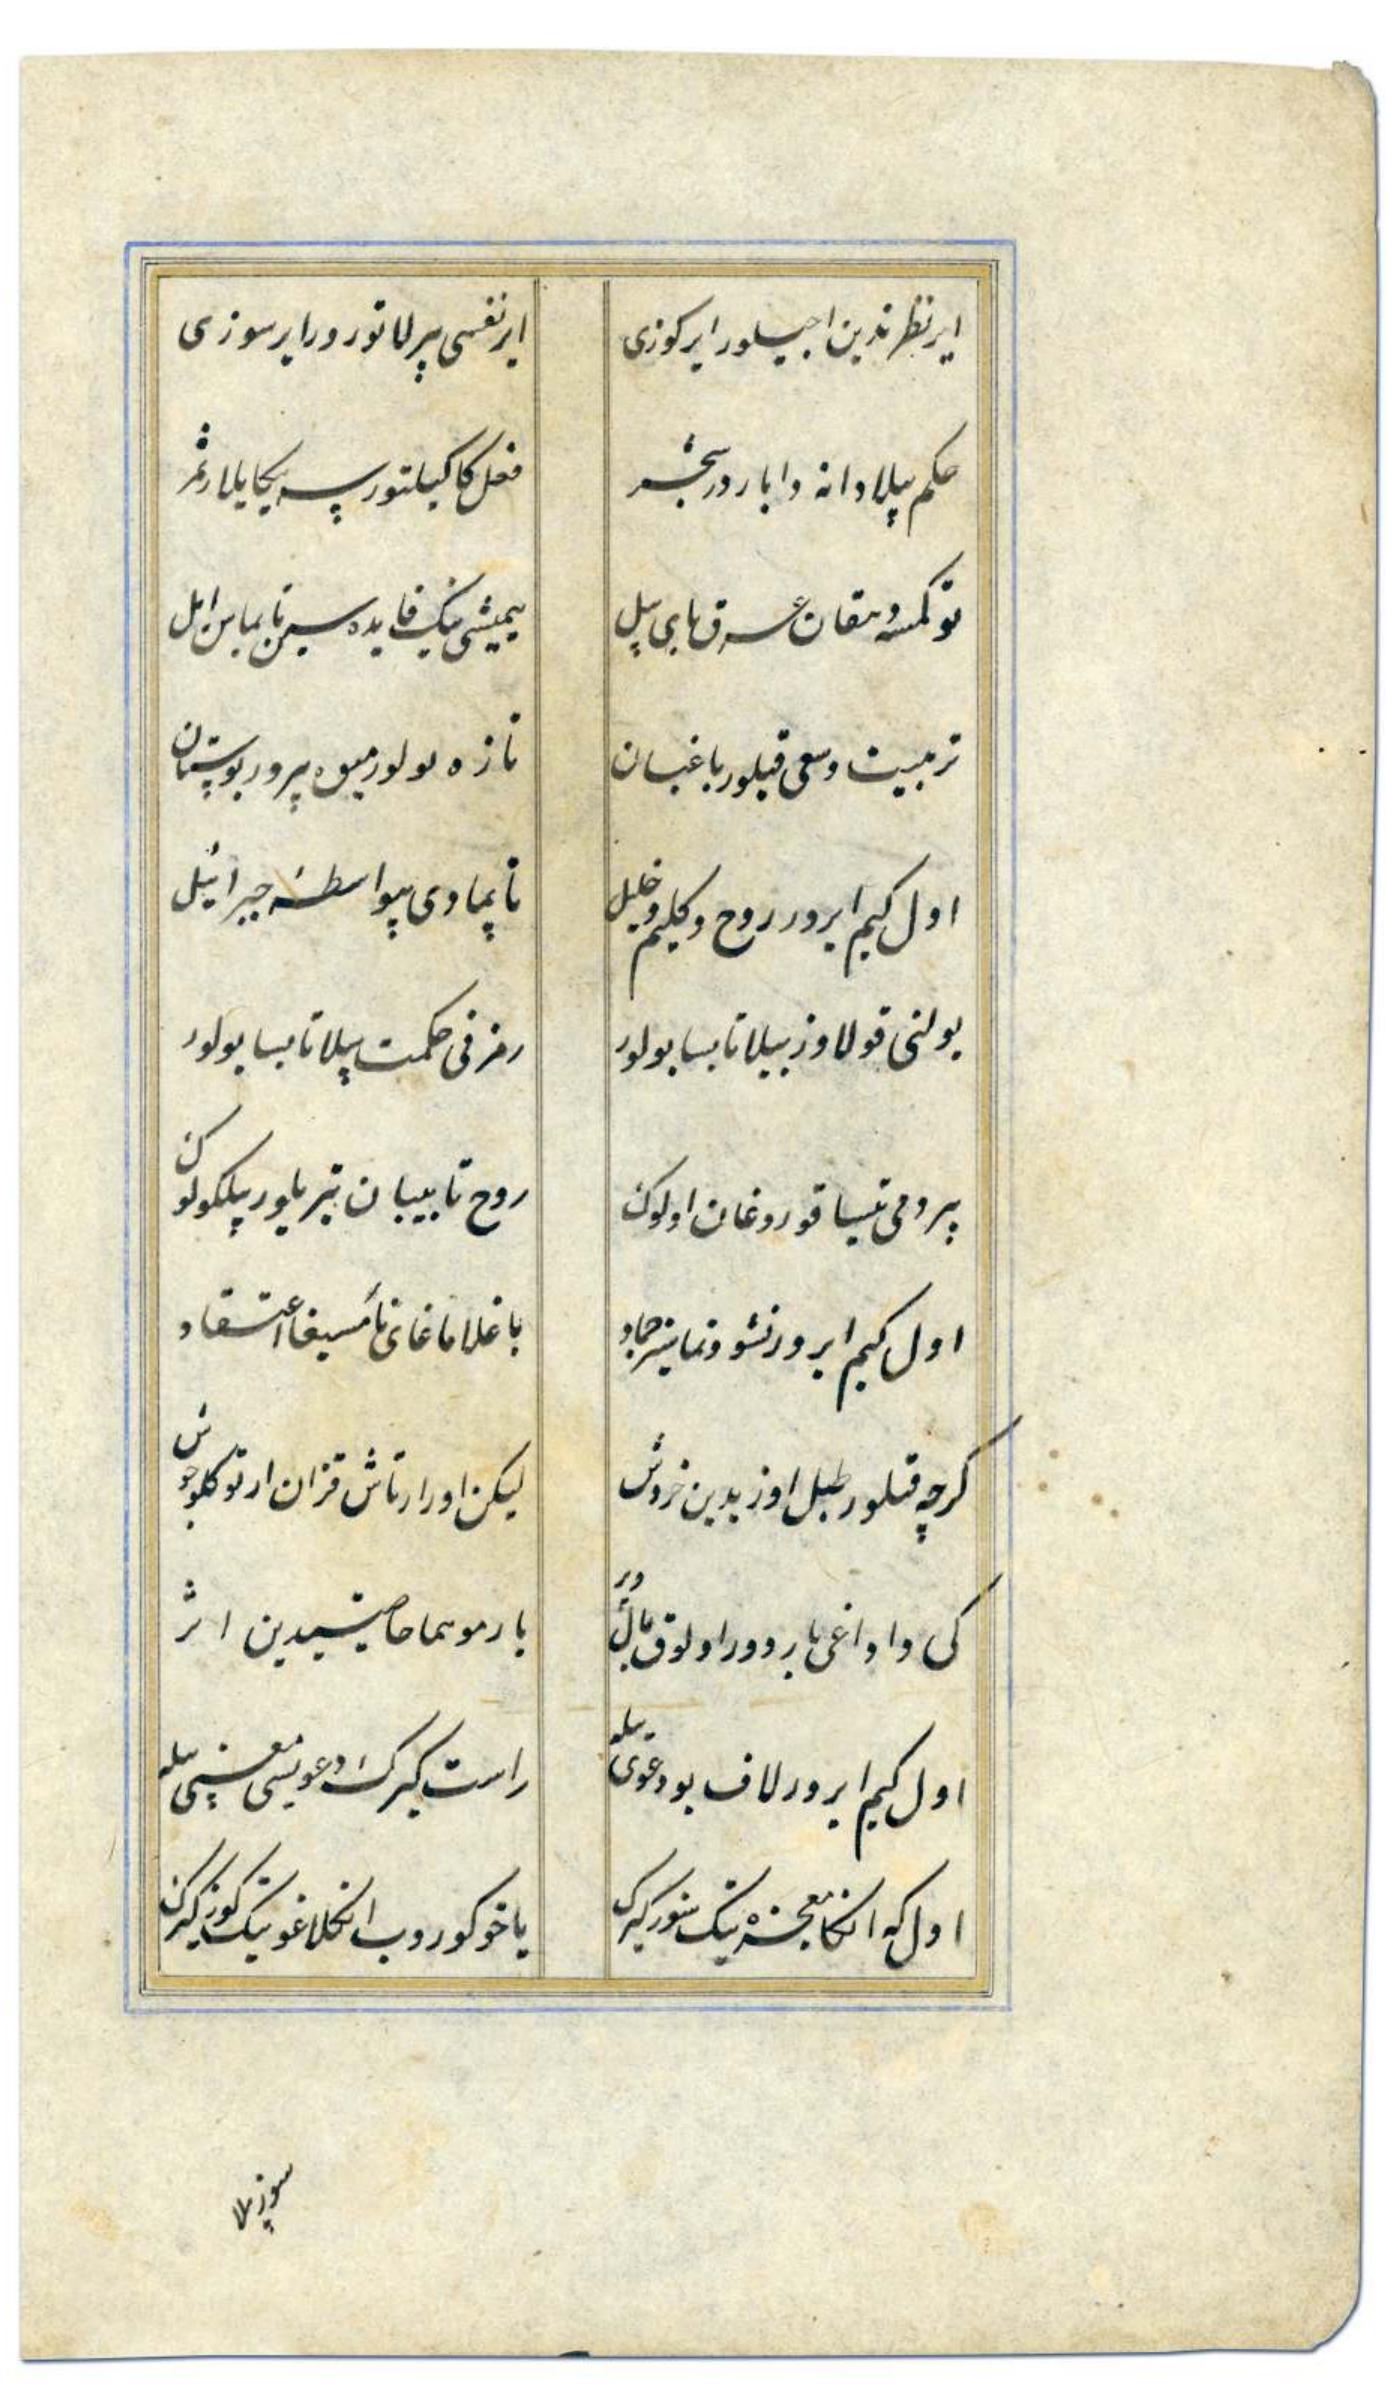 ایر نظرندین اجیلور ایر کوزی
ایر نفسی بیرلا تورور ایر سوزی
حکم بیلا دانه دا بار دور شجر
فعل کا کیلتورسه یکایلار ثمر
توکمسه دهقان عرق های بیل
یمیشی نینک فایده سین تابماس ایل
تربیت و سعی قیلور باغبان
تازه بولور میوه بیرور بوستان
اول کیم ایرور روح و کلیم و خلیل
تاپمادی بیواسطهٔ جبرائیل
یولنی قولاوز بیلا تابسا بولور
رمزنی حکمت بیلا تابسا بولور
بیر دمی تیسا قوروغان اولوک
روح تابیبان تیریلور بیلکولوک
اول کیم ایرور نشو و نماسیز جماد
باغلاماغای نامسیغا اعتقاد
کرچه قیلور طبل اوزیدین خروش
لیکن اورار تاش قزان ارتوکلوجوش
کی داداغی باردور اولوق بال و پر
بارمو هما خاصیتیدین اثر
اول کیم ایرور لاف بو دعوی بیله
راست کیرک دعویسی معنی بیله
اول که انکا معجزه نینک سوز کیرک
یا خود کوروب انکلاغونینک کوز کیرک
سوزلا